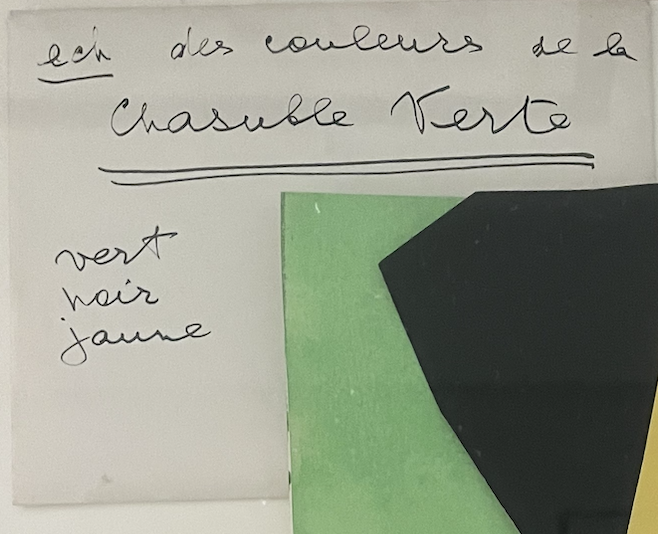 ech des couleurs de la
Chasuble Verte
vert
noir
jaune